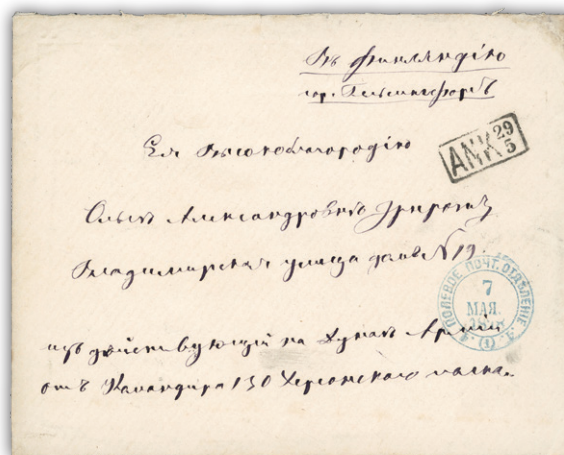 Въ Финляндію
гор. Гельсингфорсъ
Ея Высокоблагородію
ANK 29 5
Ольгѣ Александровнѣ
Владимирская улица домъ № 19.
ПОЛЕВОЕ ПОЧТ. ОТДѢЛЕНІЕ
7
МАЯ.
1
изъ дѣйствующей на Дунаѣ Арміи
отъ Командира 130 Херсонскаго полка.